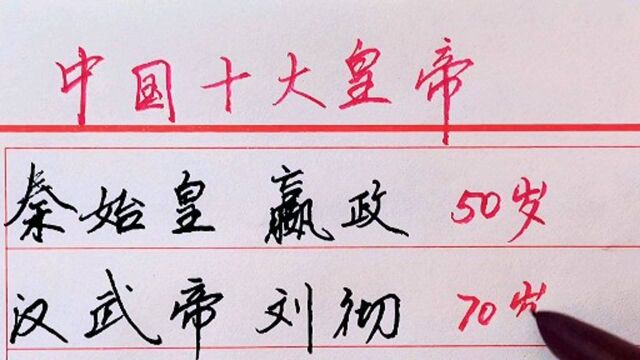 中国十大皇帝
秦始皇 嬴政 50岁
汉武帝 刘彻 70岁